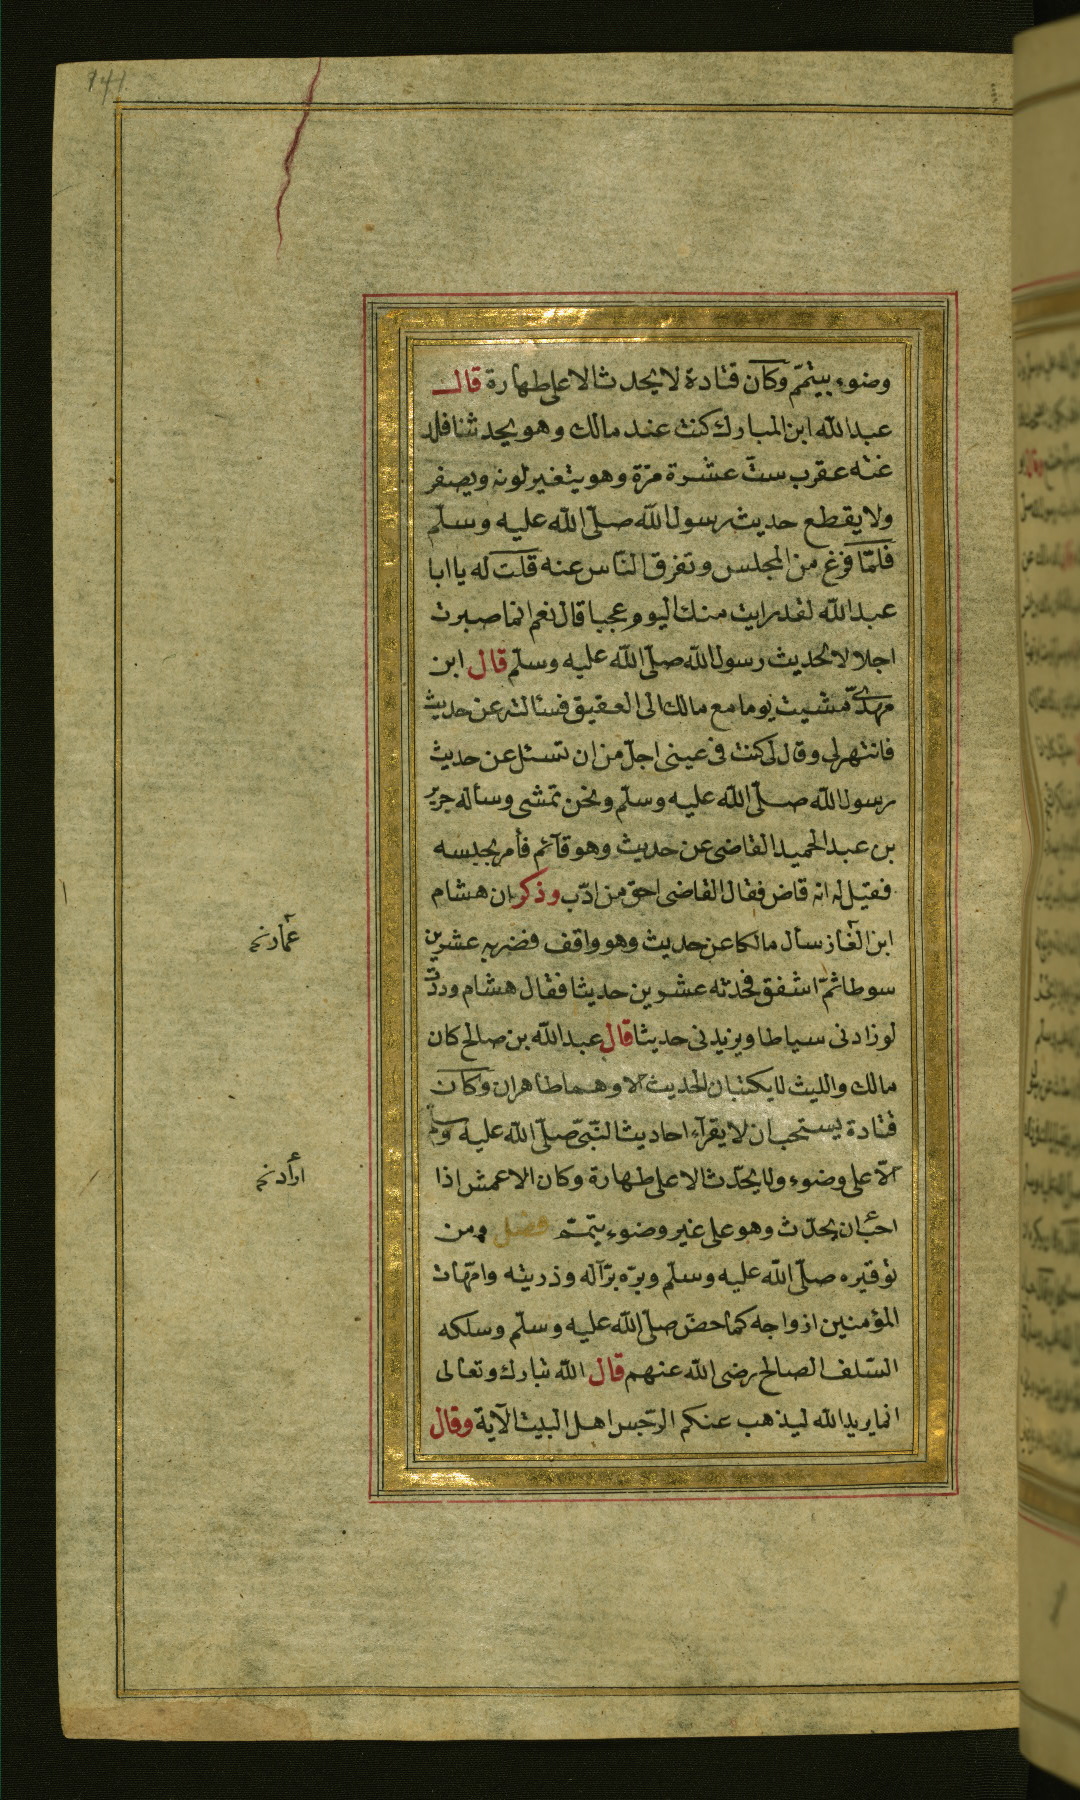 وضوء يتيمّم وكان قتادة لا يحدث الا على طهارة قال
عبد الله ابن المبارك كنت عند مالك وهو يحدثنا فلد
غته عقرب ستّ عشرة مرّة وهو يتغير لونه ويصفر
ولا يقطع حديث رسول الله صلّى الله عليه وسلّم
فلمّا فرغ من المجلس وتفرق الناس عنه قلت له يا ابا
عبد الله لقد رايت منك اليوم عجبا قال نعم انما صبرت
اجلالا لحديث رسول الله صلّى الله عليه وسلّم قال ابن
مهدىّ مشيت يوما مع مالك الى العقيق فسالته عن حديث
فانتهرنى وقال لى كنت فى عينى اجلّ من ان تسئل عن حديث
رسول الله صلّى الله عليه وسلّم ونحن نمشى وساله جرير
بن عبد الحميد القاضى عن حديث وهو قآئم فأمر بحبسه
فقيل له انه قاض فقال القاضى احق من ادّب وذكر ان هشام
ابن الغاز سأل مالكا عن حديث وهو واقف فضربه عشرين
سوطا ثمّ اشفق فحدثه عشرين حديثا فقال هشام وددت
لو زادنى سياطا ويزيدنى حديثا قال عبد الله بن صالح كان
مالك والليث لا يكتبان الحديث الا وهما طاهران وكان
قتادة يستحب ان لا يقرآء احاديث النّبىّ صلّى الله عليه وسلّم
الّا على وضوء ولا يحدّث الا على طهارة وكان الاعمش اذا
احبّ ان يحدّث وهو على غير وضوء يتيمّم فصل ومن
توقيره صلّى الله عليه وسلّم وبرّه برّ آله وذريته وامّهات
المؤمنين ازواجه كما حضّ صلّى الله عليه وسلّم وسلكه
السّلف الصالح رضى الله عنهم قال الله تبارك وتعالى
انما يريد الله ليذهب عنكم الرّجس اهل البيت الآية وقال